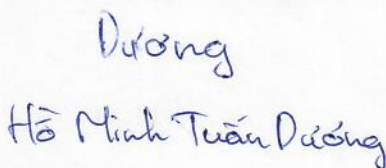 Dương
Hồ Minh Tuấn Dương